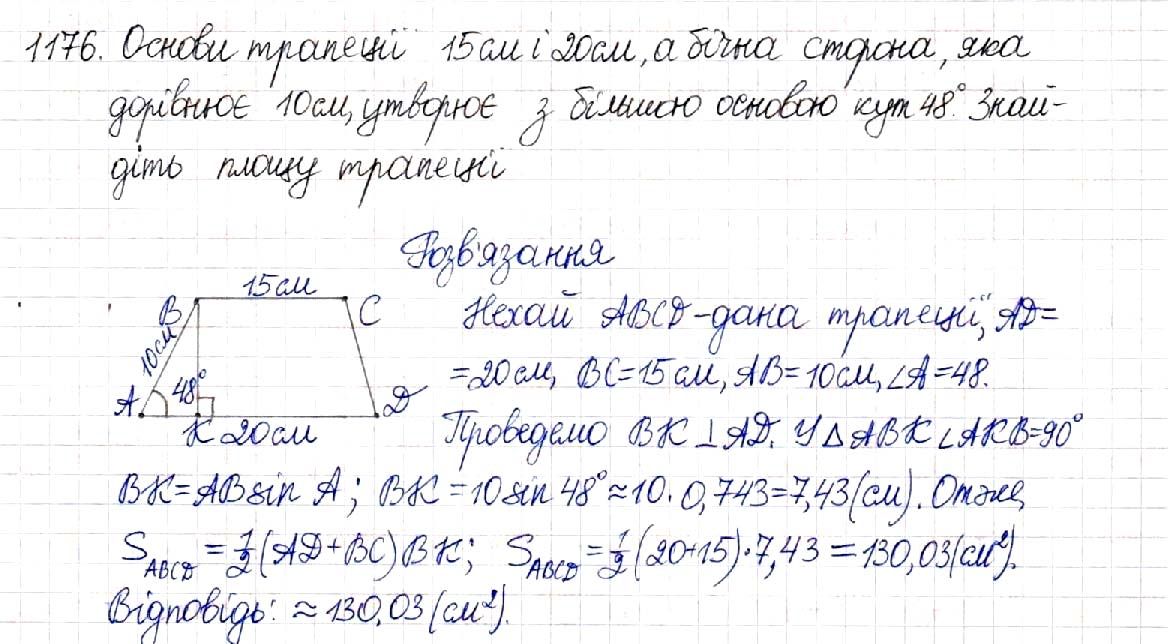 1176. Основи трапеції 15см і 20см, а бічна сторона, яка
дорівнює 10см, утворює з більшою основою кут 48°. Знай-
діть площу трапеції
Розв'язання
15см
B
C
10см
48°
A
K
20см
D
Нехай ABCD - дана трапеції, AD=
=20см, BC=15см, AB=10см, ∠A=48.
Проведемо BK⊥AD. У △ABK ∠AKB=90°
BK=AB sin A; BK=10 sin 48°≈10·0,743=7,43(см). Отже,
S_ABCD = 1/2(AD+BC)BK; S_ABCD = 1/2(20+15)·7,43=130,03(см²).
Відповідь: ≈130,03(см²).